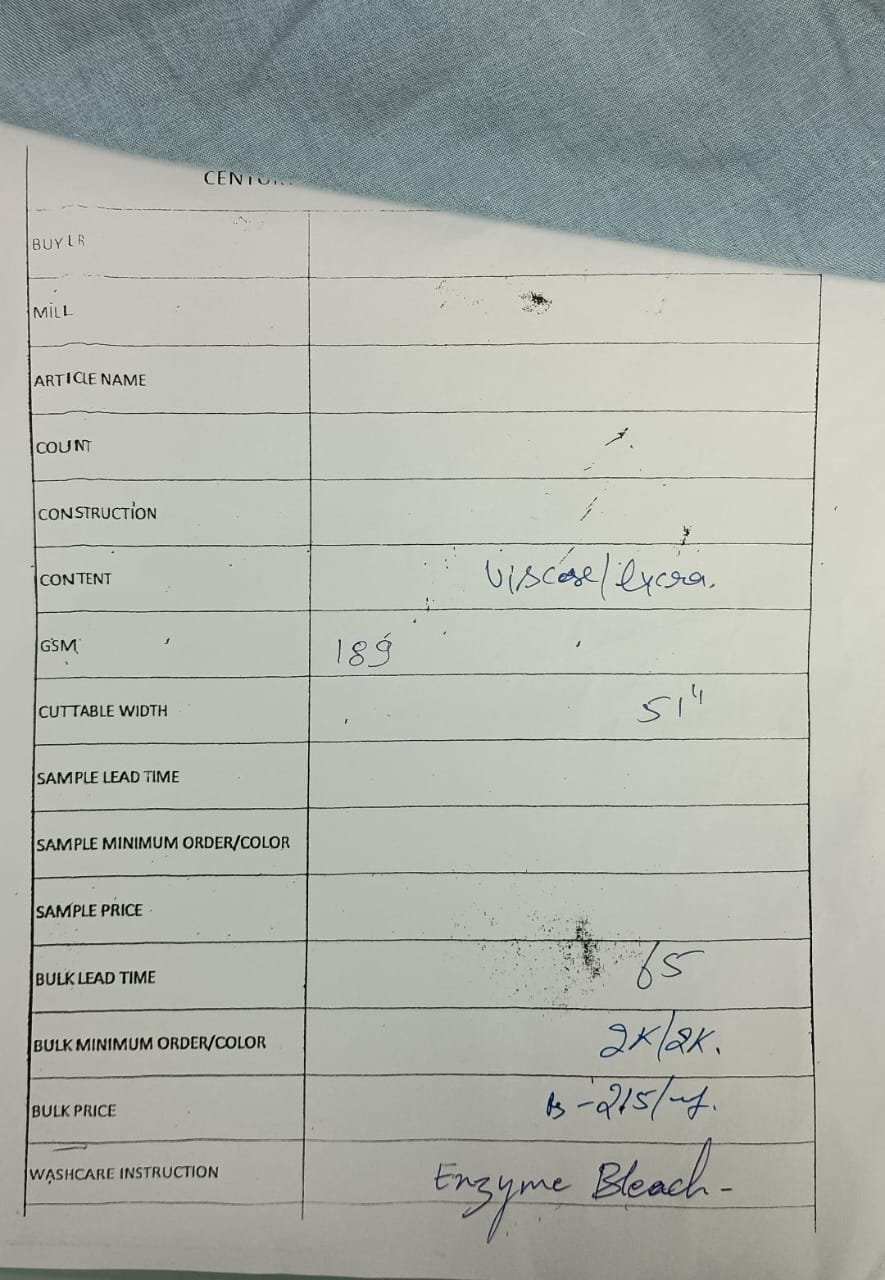 BUYER
MILL
ARTICLE NAME
COUNT
CONSTRUCTION
CONTENT Viscose/lycra.
GSM 189
CUTTABLE WIDTH 51"
SAMPLE LEAD TIME
SAMPLE MINIMUM ORDER/COLOR
SAMPLE PRICE
BULK LEAD TIME 65
BULK MINIMUM ORDER/COLOR 2K/2K.
BULK PRICE 215/
WASHCARE INSTRUCTION Enzyme Bleach-